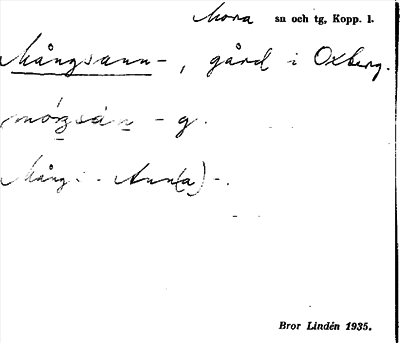 Mora sn och tg, Kopp. l.
Mångsann-, gård i Oxberg.
- g.
Mång- - Ann(a)-.
Bror Lindén 1935.